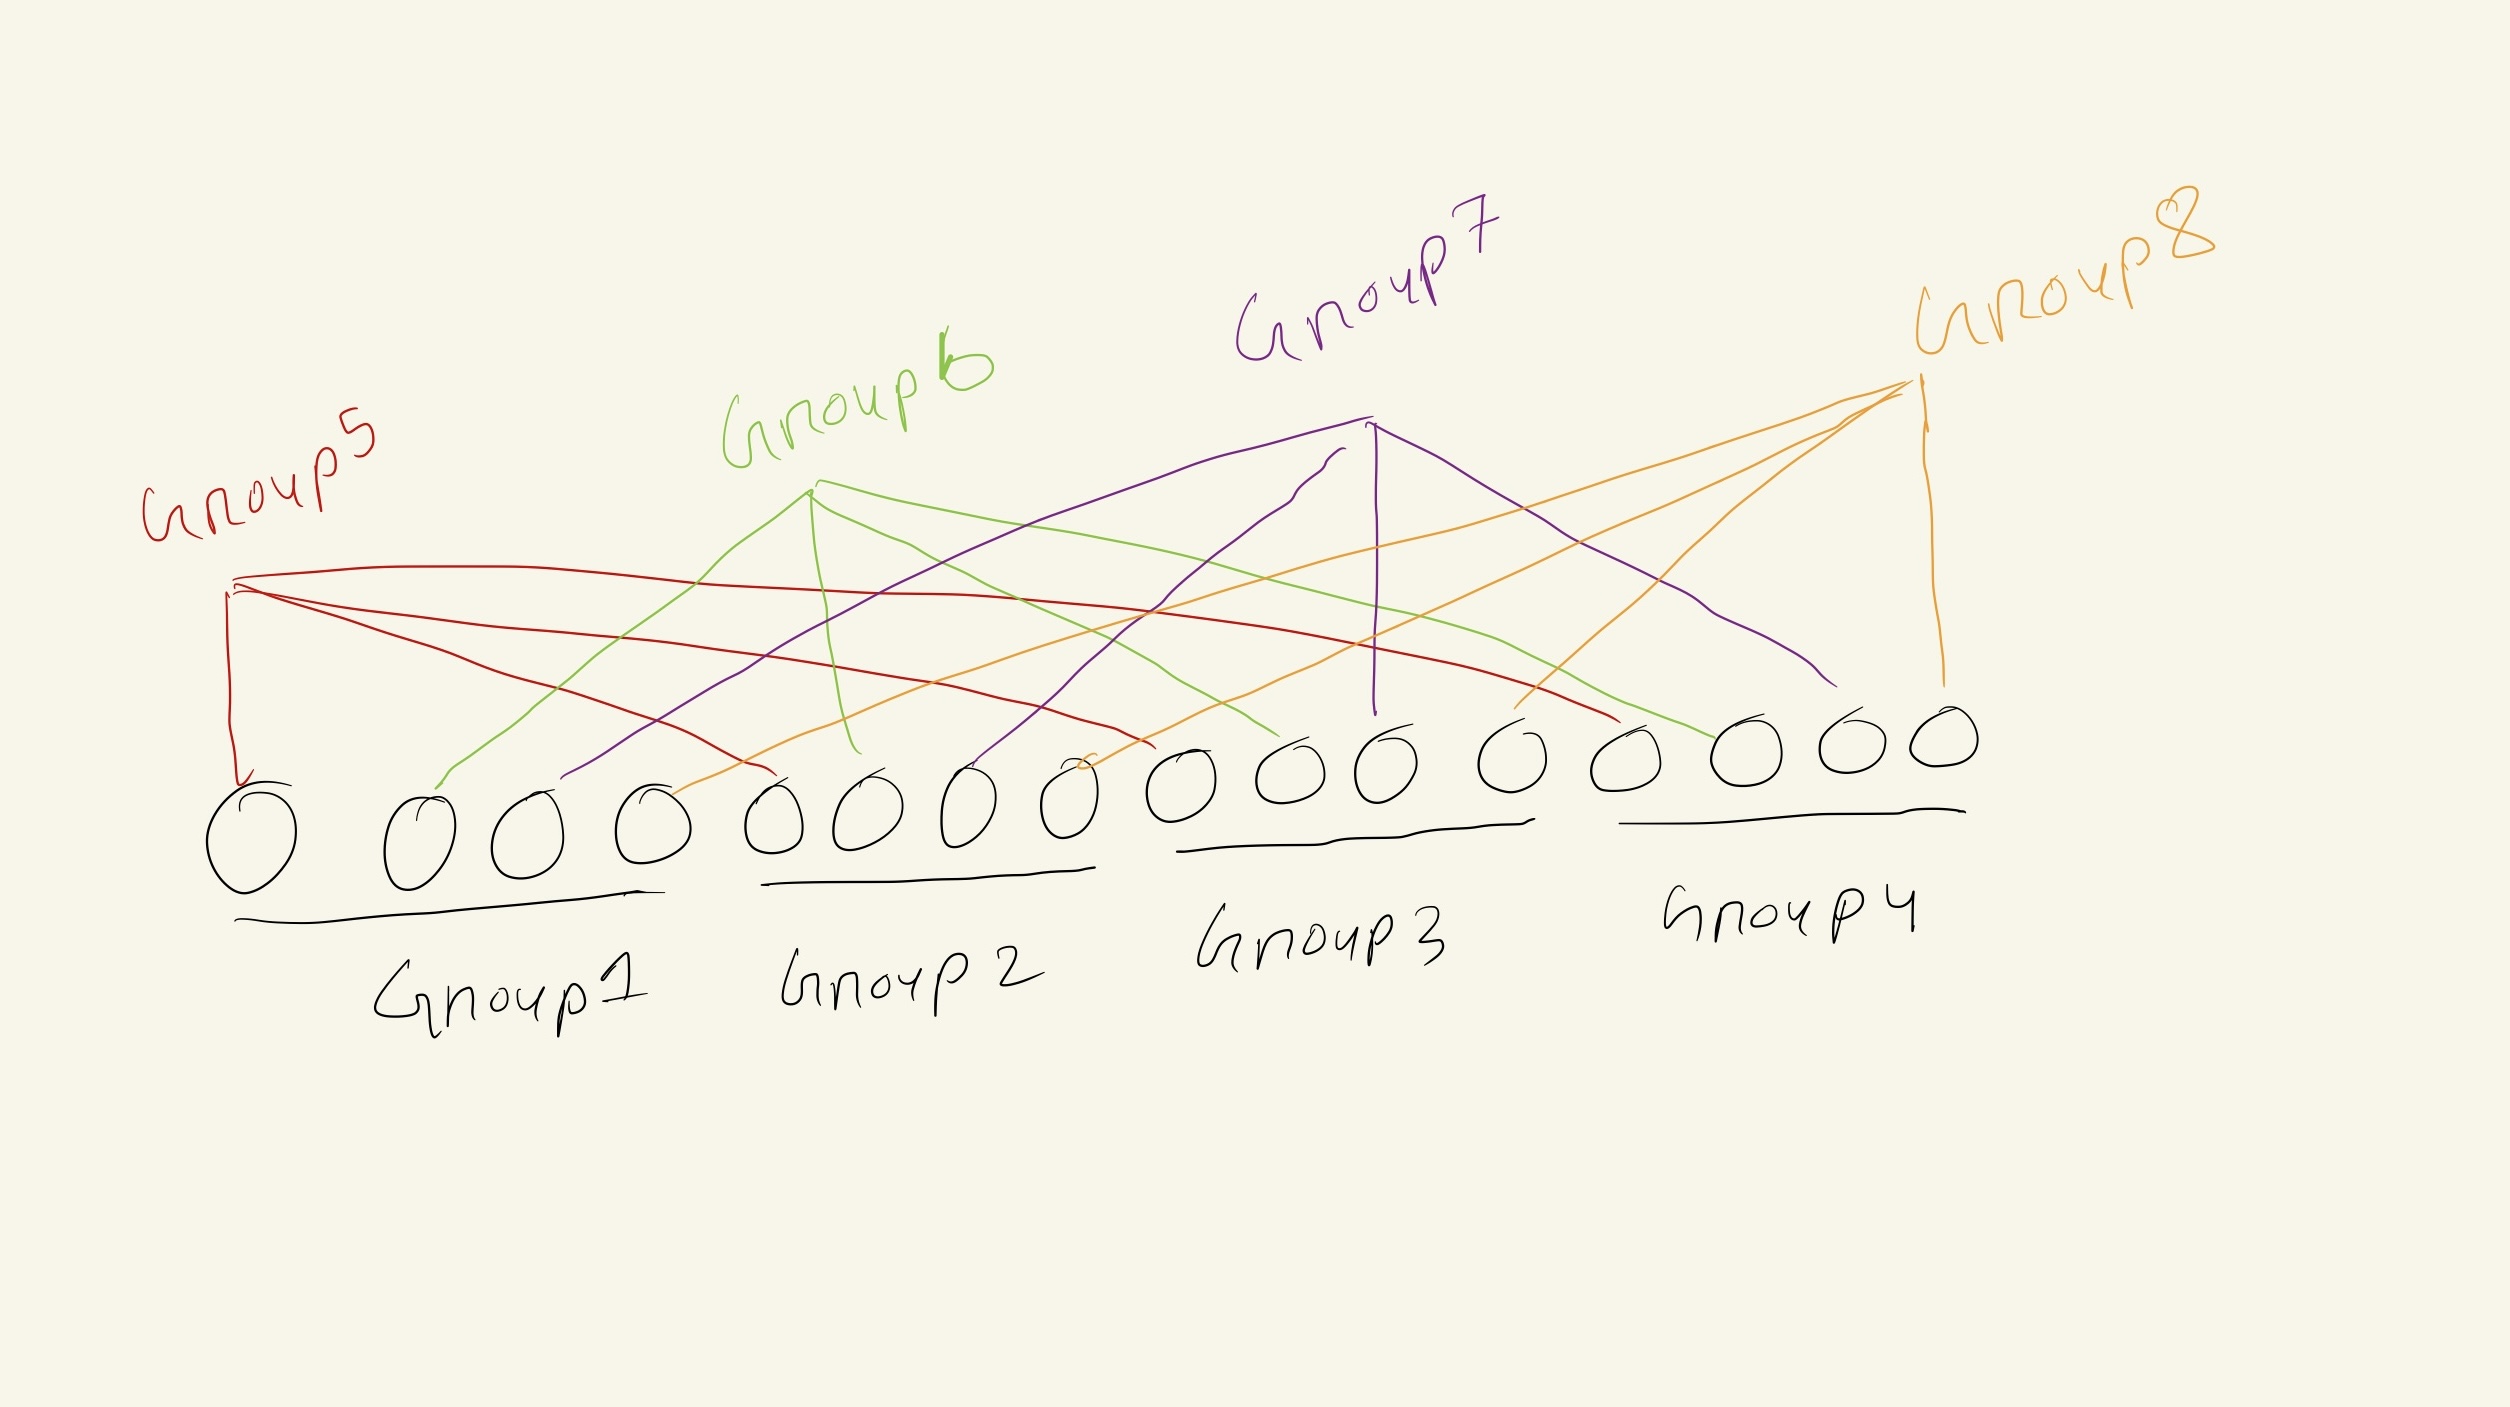 Group 5
Group 6
Group 7
GRoup 8
Group 1
Group 2
Group 3
Group 4